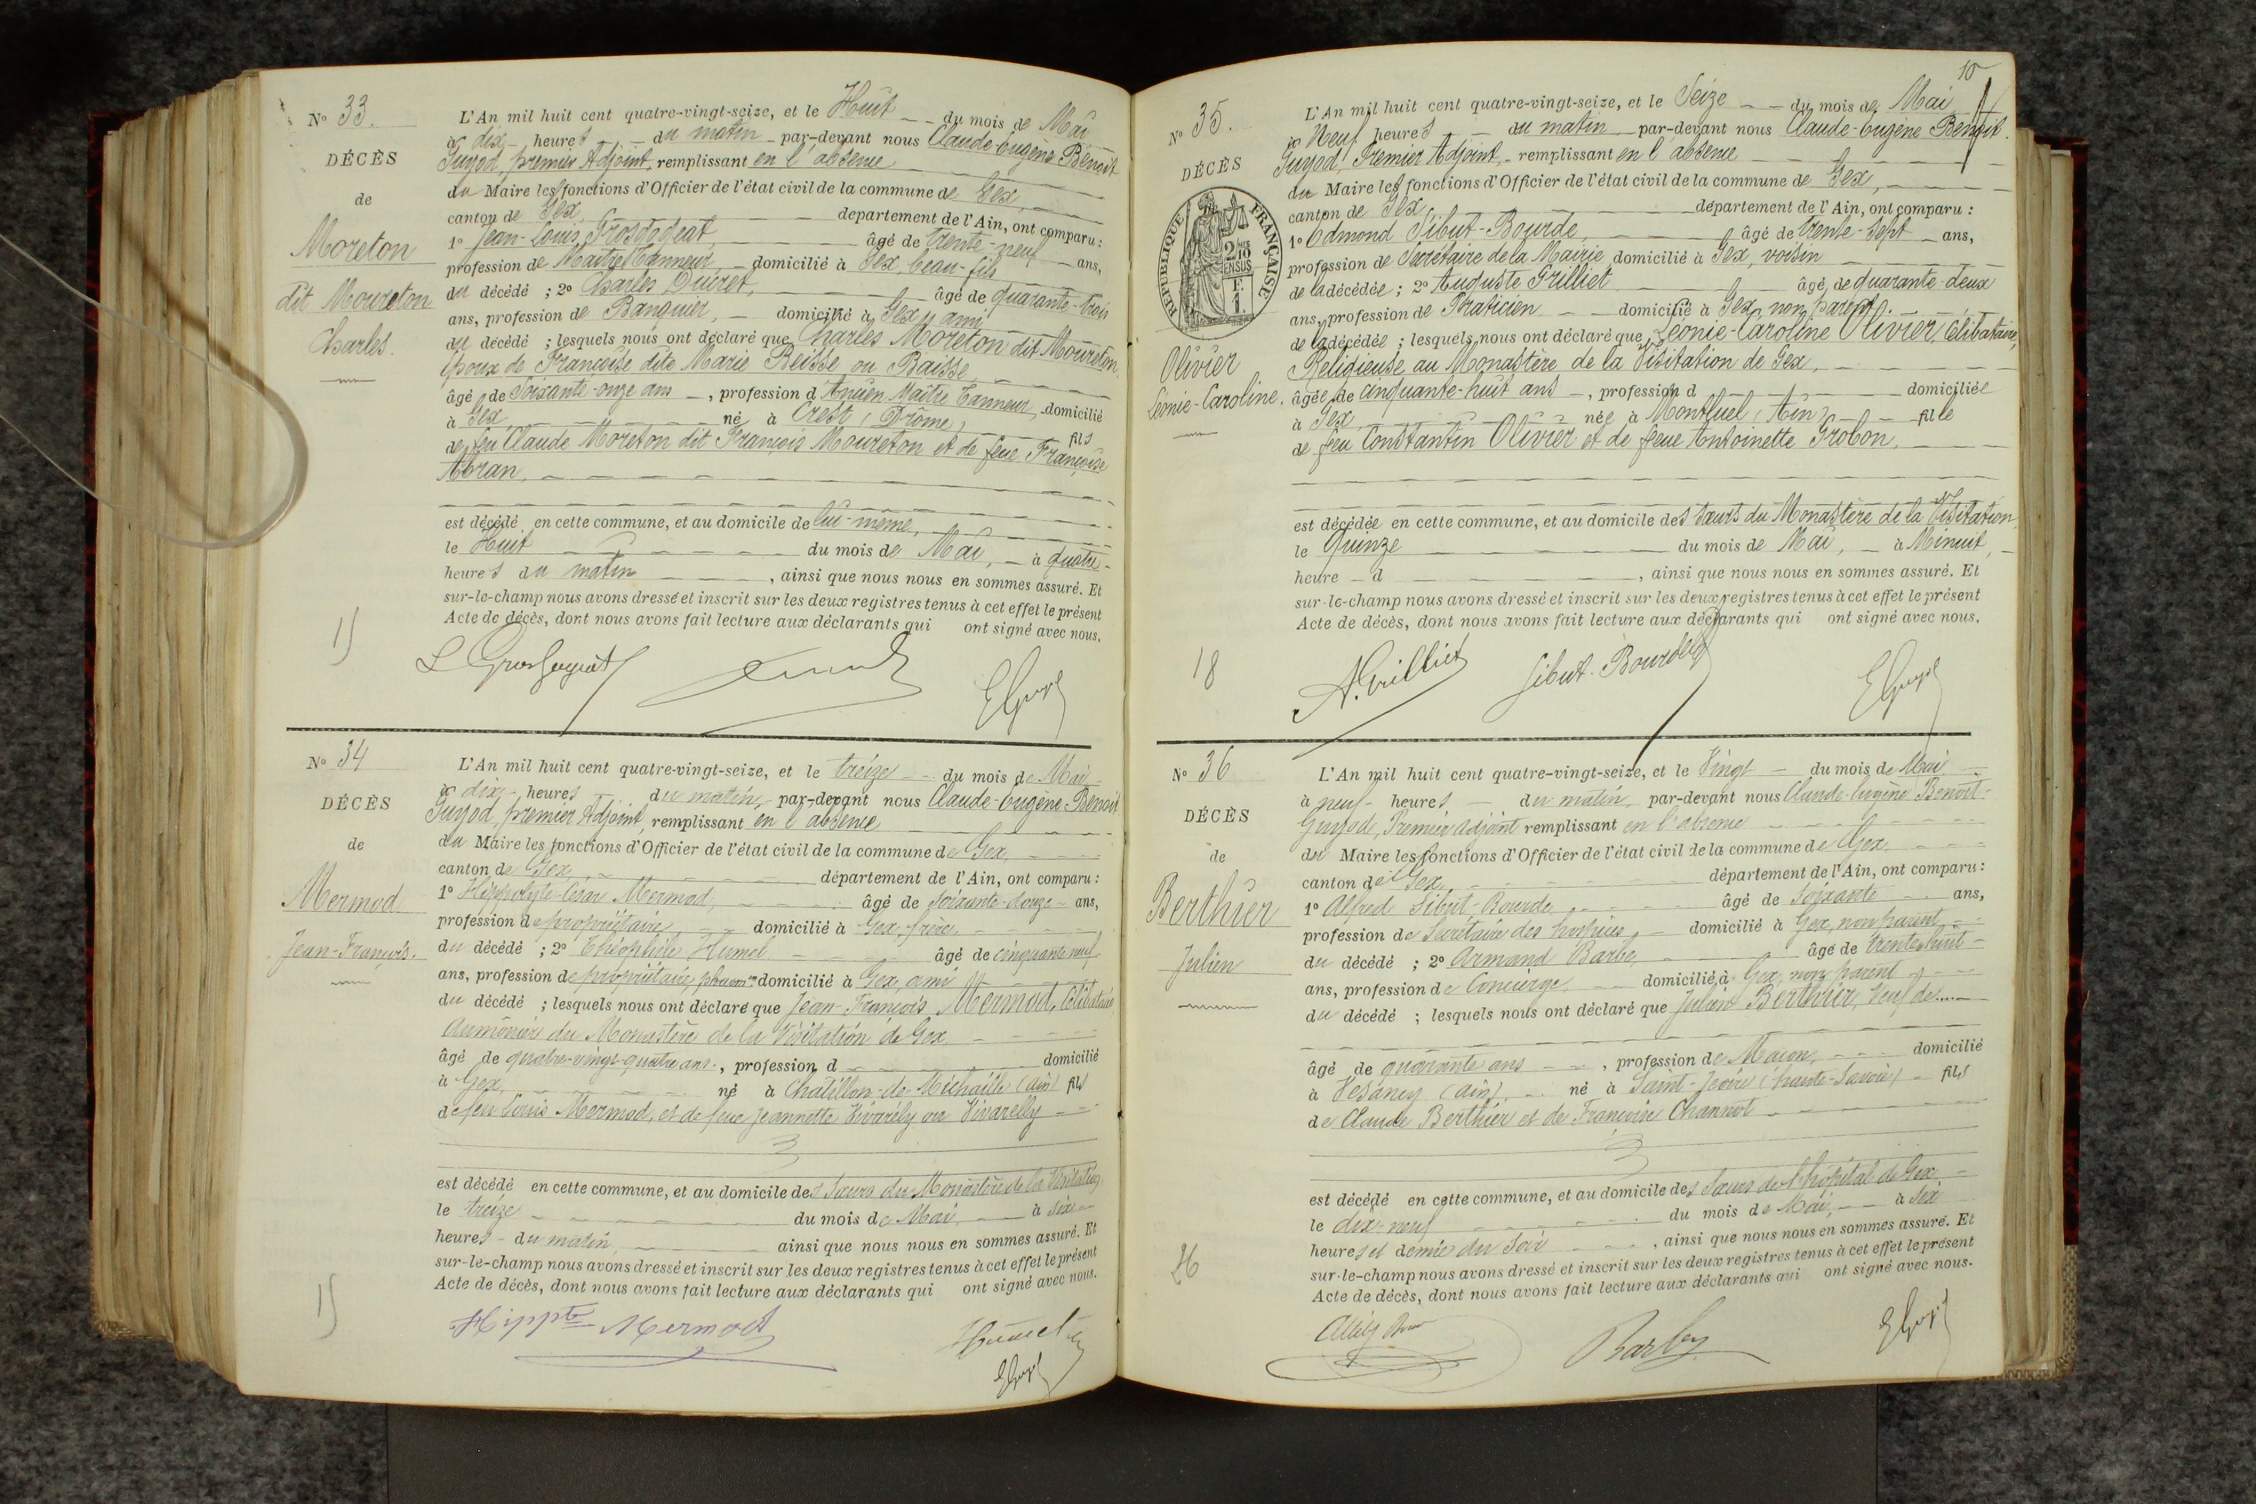 No 33.
DÉCÈS
de
Moreton
dit Moureton
Charles.
L'An mil huit cent quatre-vingt-seize, et le Huit du mois de Mai
à dix heures du matin par-devant nous Claude-Eugène Benoit
Guyod, premier Adjoint, remplissant en l'absence
du Maire les fonctions d'Officier de l'état civil de la commune de Gex,
canton de Gex, département de l'Ain, ont comparu :
1o Jean-Louis âgé de trente-neuf ans,
profession de Maître Tanneur domicilié à Gex, beau-fils
du décédé ; 2o Charles Ducret, âgé de quarante-trois
ans, profession de Banquier, domicilié à Gex, ami
du décédé ; lesquels nous ont déclaré que Charles Moreton dit Moureton
époux de Françoise dite Marie Beisse ou Baisse
âgé de Soixante-onze ans, profession d'Ancien Maître Tanneur, domicilié
à Gex, né à Crest (Drôme) fils
de feu Claude Moreton dit François Moureton et de feue Françoise
Abran,
est décédé en cette commune, et au domicile de lui-même,
le Huit du mois de Mai, à quatre
heures du matin, ainsi que nous nous en sommes assuré. Et
sur-le-champ nous avons dressé et inscrit sur les deux registres tenus à cet effet le présent
Acte de décès, dont nous avons fait lecture aux déclarants qui ont signé avec nous.
No 34
DÉCÈS
de
Mermod
Jean-François.
L'An mil huit cent quatre-vingt-seize, et le treize du mois de Mai
à dix heures du matin, par-devant nous Claude-Eugène-Benoit
Guyod, premier Adjoint, remplissant en l'absence
du Maire les fonctions d'Officier de l'état civil de la commune de Gex,
canton de Gex, département de l'Ain, ont comparu :
1o Hippolyte-César Mermod, âgé de soixante-douze ans,
profession de propriétaire domicilié à Gex, frère
du décédé ; 2o Théophile Humel âgé de cinquante neuf
ans, profession de propriétaire domicilié à Gex, ami
du décédé ; lesquels nous ont déclaré que Jean-François Mermod, Célibataire
Aumônier du Monastère de la Visitation de Gex
âgé de quatre-vingt-quatre ans, profession d domicilié
à Gex, né à Châtillon-de-Michaille (Ain) fils
de feu Louis Mermod, et de feue Jeannette Vivarély ou Vivarelly
est décédé en cette commune, et au domicile des Sœurs du Monastère de la Visitation
le treize du mois de Mai, à six
heures du matin, ainsi que nous nous en sommes assuré. Et
sur-le-champ nous avons dressé et inscrit sur les deux registres tenus à cet effet le présent
Acte de décès, dont nous avons fait lecture aux déclarants qui ont signé avec nous.
Hippte Mermod
Humel
10
No 35.
DÉCÈS
RÉPUBLIQUE FRANÇAISE
Olivier
Léonie-Caroline.
L'An mil huit cent quatre-vingt-seize, et le Seize du mois de Mai
à Neuf heures du matin par-devant nous Claude-Eugène Benoit.
Guyod, Premier Adjoint, remplissant en l'absence
du Maire les fonctions d'Officier de l'état civil de la commune de Gex,
canton de Gex département de l'Ain, ont comparu :
1o Edmond Sibut-Bourde, âgé de trente-sept ans,
profession de Secrétaire de la Mairie domicilié à Gex, voisin
de la décédée ; 2o Auguste Grilliet âgé de quarante-deux
ans, profession de Praticien domicilié à Gex non parent
de la décédée ; lesquels nous ont déclaré que Léonie-Caroline Olivier, Célibataire,
Religieuse au Monastère de la Visitation de Gex,
âgée de cinquante-huit ans, profession d domiciliée
à Gex née à Montluel (Ain) fille
de feu Constantin Olivier et de feue Antoinette Grobon,
est décédée en cette commune, et au domicile des Sœurs du Monastère de la Visitation
le Quinze du mois de Mai, à Minuit,
heure d , ainsi que nous nous en sommes assuré. Et
sur-le-champ nous avons dressé et inscrit sur les deux registres tenus à cet effet le présent
Acte de décès, dont nous avons fait lecture aux déclarants qui ont signé avec nous.
18
A. Grilliet Sibut-Bourde
No 36
DÉCÈS
de
Berthier
Julien
L'An mil huit cent quatre-vingt-seize, et le Vingt du mois de Mai
à neuf heures du matin, par-devant nous Claude-Eugène Benoit-
Guyod, Premier adjoint remplissant en l'absence
du Maire les fonctions d'Officier de l'état civil de la commune de Gex,
canton de Gex, département de l'Ain, ont comparu :
1o Alfred Sibut-Bourde, âgé de Soixante ans,
profession de Secrétaire des hospices, domicilié à Gex, non parent
du décédé ; 2o Armand Barbe, âgé de trente-huit
ans, profession de Concierge domicilié à Gex, non parent
du décédé ; lesquels nous ont déclaré que Julien Berthier, Veuf de....
âgé de quarante ans, profession de Maçon, domicilié
à Vesancy (Ain), né à Saint-Jeoire (haute-Savoie) fils
de Claude Berthier et de Françoise Channot
est décédé en cette commune, et au domicile des Sœurs de l'hôpital de Gex
le dix-neuf du mois de Mai, à Six
heures et demie du Soir, ainsi que nous nous en sommes assuré. Et
sur-le-champ nous avons dressé et inscrit sur les deux registres tenus à cet effet le présent
Acte de décès, dont nous avons fait lecture aux déclarants qui ont signé avec nous.
26